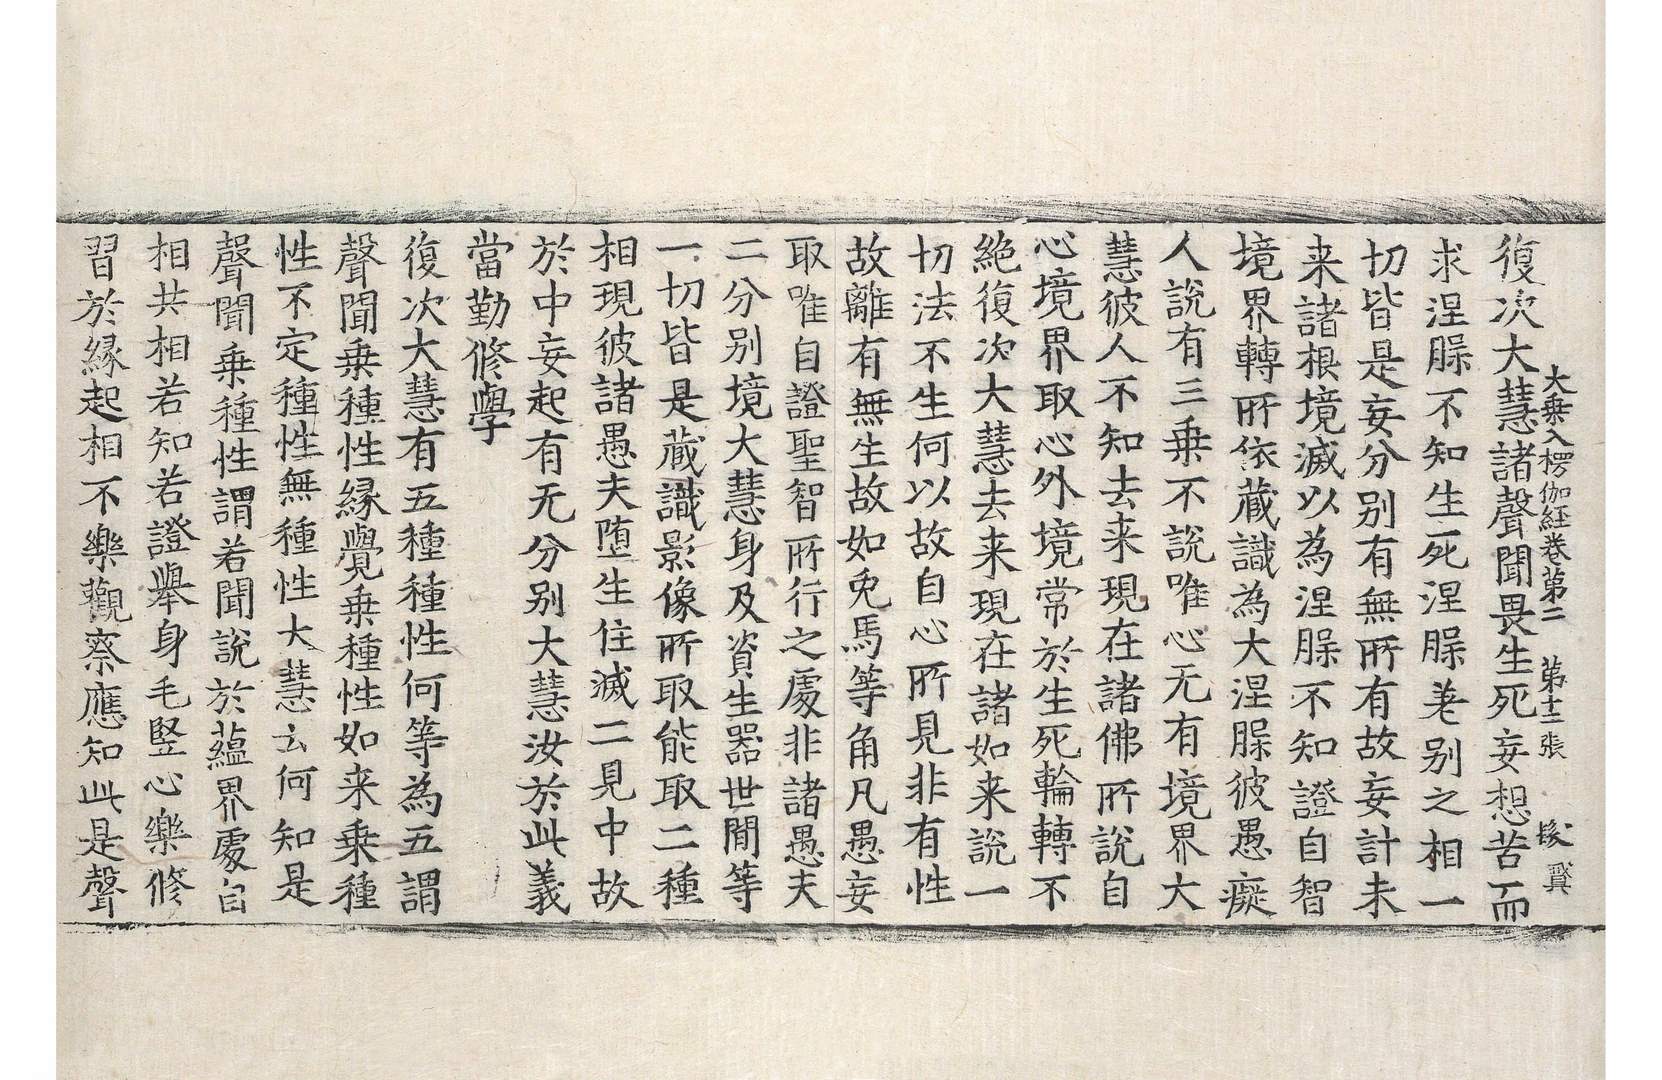 大乗入楞伽経卷第二 第十二張
復次大慧諸聲聞畏生死妄想苦而
求涅槃不知生死涅槃差别之相一
切皆是妄分别有無所有故妄計未
来諸根境滅以為涅槃不知證自智
境界轉所依藏識為大涅槃彼愚癡
人說有三乗不說唯心无有境界大
慧彼人不知去来現在諸佛所說自
心境界取心外境常於生死輪轉不
絶復次大慧去来現在諸如来說一
切法不生何以故自心所見非有性
故離有無生故如兎馬等角凡愚妄
取唯自證聖智所行之處非諸愚夫
二分别境大慧身及資生器世間等
一切皆是藏識影像所取能取二種
相現彼諸愚夫墮生住滅二見中故
於中妄起有无分别大慧汝於此義
當勤修學
復次大慧有五種種性何等為五謂
聲聞乗種性縁覺乗種性如来乗種
性不定種性無種性大慧云何知是
聲聞乗種性謂若聞說於蘊界處自
相共相若知若證舉身毛竪心樂修
習於縁起相不樂觀察應知此是聲